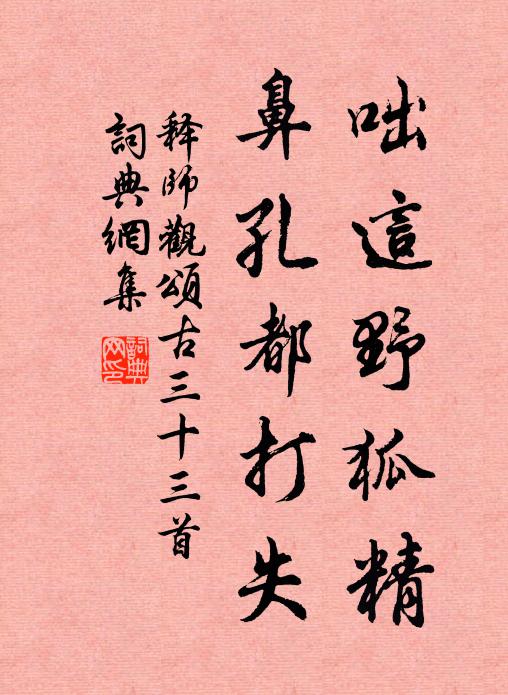 咄這野狐精
鼻孔都打失
释師觀頌古三十三首
詞典網集
詞典網印